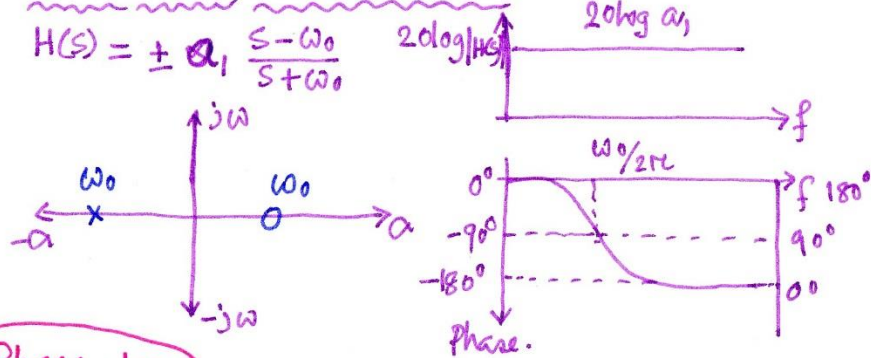 H(S) = ± a₁ (S-ω₀)/(S+ω₀)
20log|H(S)|
20log a₁
f
jω
ω₀
ω₀
-a
a
-jω
ω₀/2π
0°
-90°
-180°
f 180°
90°
0°
Phase.